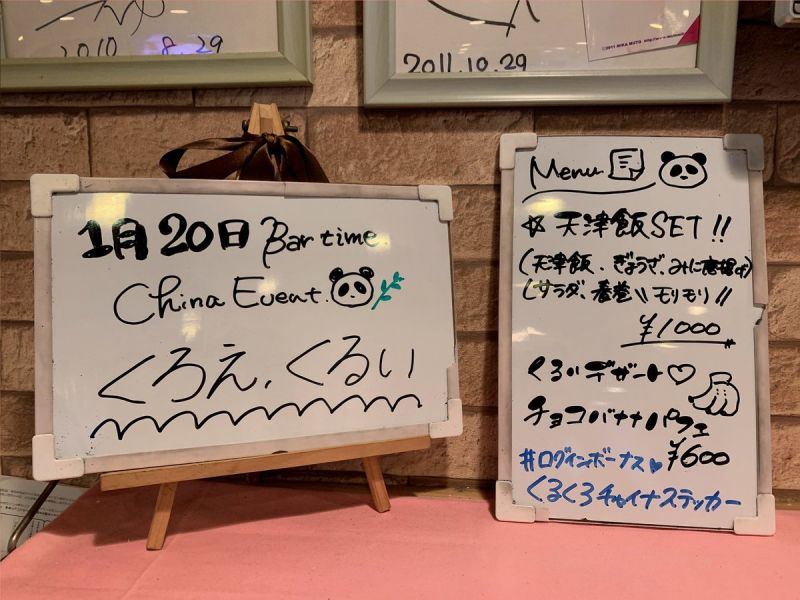 2010 8.29
2011.10.29
©2011 MIKA MUTO
1月20日 Bar time.
China Event.
くろえ,くるい
Menu
☆天津飯SET!!
(天津飯、ぎょうざ、みに唐揚げ)
サラダ、春巻 \\モリモリ!!
¥1000
くるいデザート♡
チョコバナナパフェ
¥600
#ログインボーナス♥
くるくろチャイナステッカー